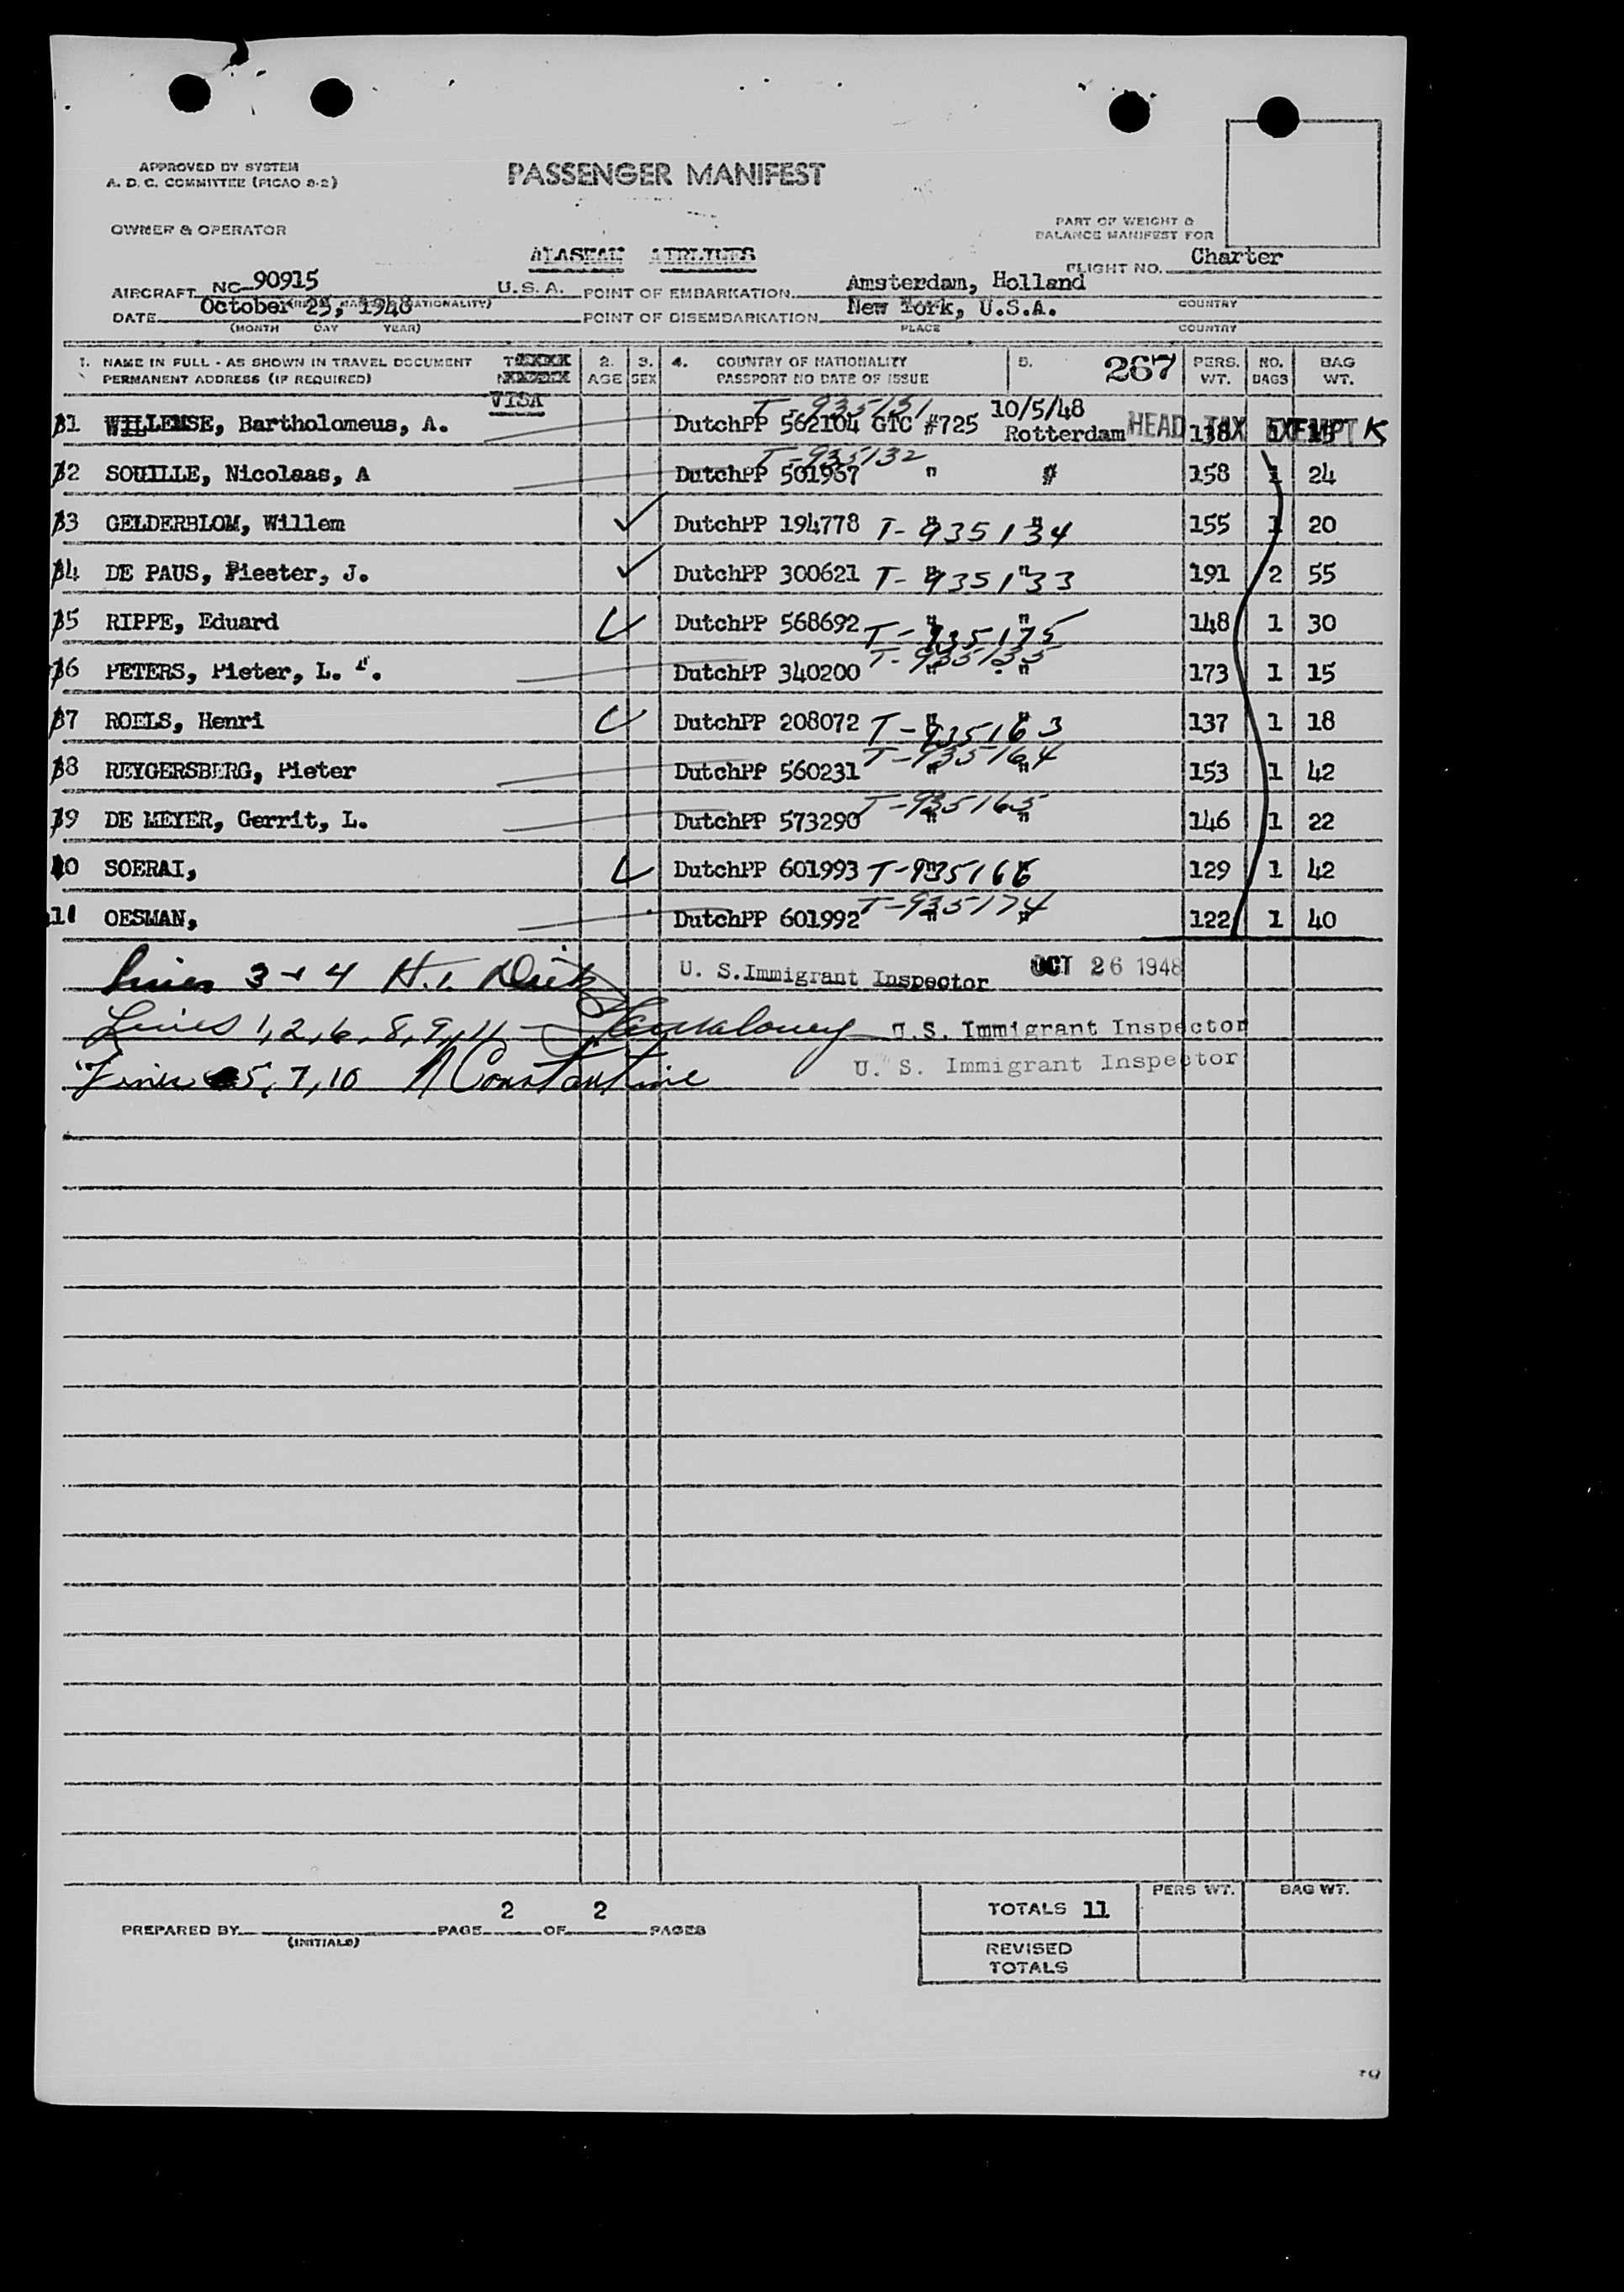 APPROVED BY SYSTEM
A. D. C. COMMITTEE (PICAO 8-2)
PASSENGER MANIFEST
OWNER & OPERATOR
PART OF WEIGHT &
BALANCE MANIFEST FOR
ALASKAN AIRLINES
FLIGHT NO. Charter
AIRCRAFT NC-90915 U.S.A. POINT OF EMBARKATION Amsterdam, Holland
COUNTRY
DATE October 25, 1948 POINT OF DISEMBARKATION New York, U.S.A.
(MONTH DAY YEAR) PLACE COUNTRY
1. NAME IN FULL - AS SHOWN IN TRAVEL DOCUMENT 2. 3. 4. COUNTRY OF NATIONALITY 5. 267 PERS. NO. BAG
PERMANENT ADDRESS (IF REQUIRED) AGE SEX PASSPORT NO DATE OF ISSUE WT. BAGS WT.
VISA
T-935131 10/5/48
1 WILLEMSE, Bartholomeus, A. DutchPP 562104 GTC #725 Rotterdam HEAD TAX EXEMPT K 138 1
T-935132
2 SOUILLE, Nicolaas, A DutchPP 501967 " # 158 1 24
3 GELDERBLOM, Willem DutchPP 194778 T-935134 " " 155 1 20
4 DE PAUS, Pieeter, J. DutchPP 300621 T-935133 " " 191 2 55
5 RIPPE, Eduard DutchPP 568692 T-935175 " " 148 1 30
6 PETERS, Pieter, L. DutchPP 340200 T-935135 " " 173 1 15
7 ROELS, Henri DutchPP 208072 T-935163 " " 137 1 18
8 REYGERSBERG, Pieter DutchPP 560231 T-935164 " " 153 1 42
9 DE MEYER, Gerrit, L. DutchPP 573290 T-935165 " " 146 1 22
10 SOERAI, DutchPP 601993 T-935166 " " 129 1 42
11 OESMAN, DutchPP 601992 T-935174 " " 122 1 40
Lines 3+4 H. U. S. Immigrant Inspector OCT 26 1948
Lines 1,2,6,8,9,11 U.S. Immigrant Inspector
Lines 5,7,10 N Constantine U. S. Immigrant Inspector
PERS WT. BAG WT.
TOTALS 11
PREPARED BY PAGE 2 OF 2 PAGES
(INITIALS)
REVISED
TOTALS